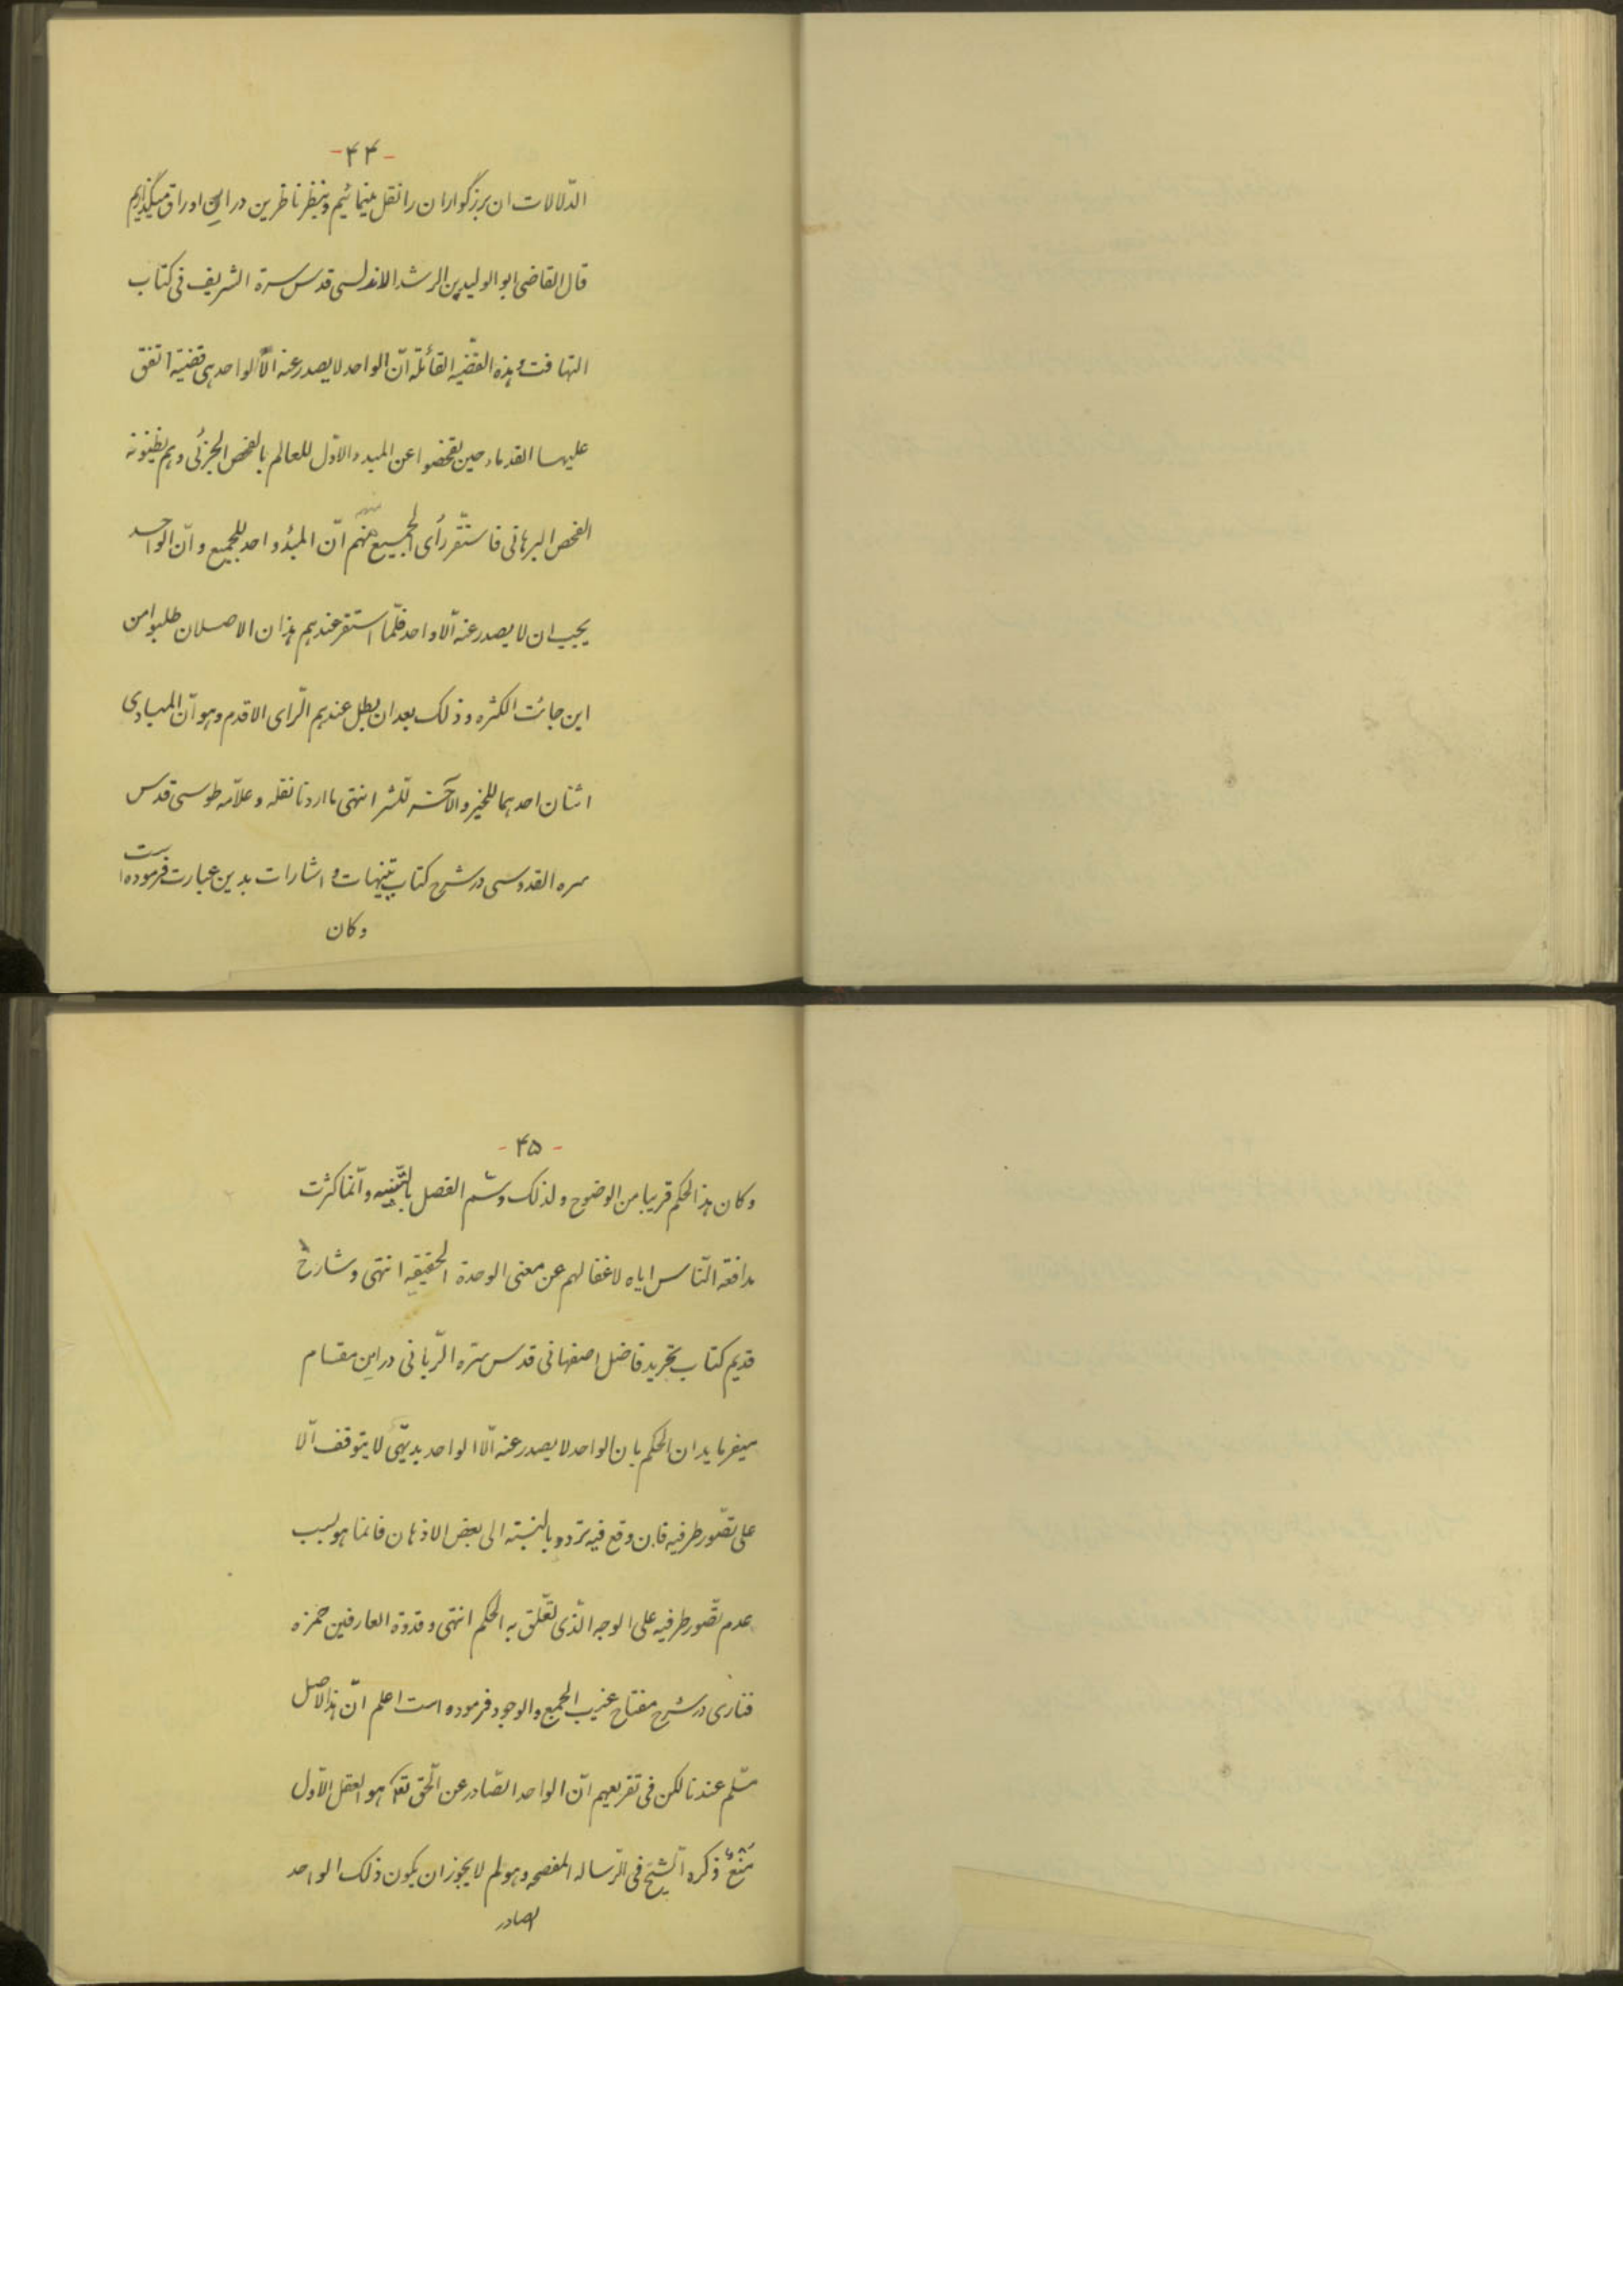 -۴۴-
الدّلالات ان بزرگواران را نقل مینمائیم و بنظر ناظرین در این اوراق میگذاریم
قال القاضی ابو الولید بن الرشد الاندلسی قدس سره الشریف فی کتاب
التهافت و هذه القضیه القائلة انّ الواحد لا یصدر عنه الّا الواحد هی قضیة اتفق
علیها القدماء حین تفحضوا عن المبدء الاوّل للعالم بالفحص الجزئی و هم یظنونه
الفحص البرهانی فاستقّر رأی الجمیع منهم انّ المبدُء واحد للجمیع و انّ الواحد
یجب ان لا یصدر عنه الّا واحد فلّما استقر عندهم هذان الاصلان طلبوا من
این جائت الکثره و ذلک بعد ان بطل عندهم الّرای الاقدم و هو انّ المبادی
اثنان احدهما للخیر والآخر للّشر انتهی ما اردنا نقله و علّامه طوسی قدس
سره القدوسی در شرح کتاب تنبیهات و اشارات بدین عبارت فرموده است
و کان
- ۴۵ -
و کان هذا لحکم قریبا من الوضوح و لذلک وسّم الفصل بالتّنبیه و انّما کثرت
مدافعة النّاس ایاه لاغفالهم عن معنی الوحدة الحقیقیه انتهی و شارح
قدیم کتاب تجرید فاضل اصفهانی قدس سّره الّربانی در این مقام
میفرماید ان الحکم بان الواحد لا یصدر عنه الّا الواحد بدیهّی لا یتوقف الّا
علی تصّور طرفیه فان وقع فیه تردد بالنسبته الی بعض الاذهان فانما هو بسبب
عدم تصّور طرفیه علی الوجه الّذی تعّلق به الحکم انتهی و قدوة العارفین حمزه
فناری در شرح مفتاح غیب الجمع والوجود فرموده است اعلم انّ هذا لاصل
مسّلم عندنا لکن فی تفریعهم انّ الواحد الصّادر عن الّحق تعالی هو العقل الاّول
منعٌ ذکره الّشیخ فی الّرساله المفصحه و هو لم لا یجوز ان یکون ذلک الواحد
الصادر